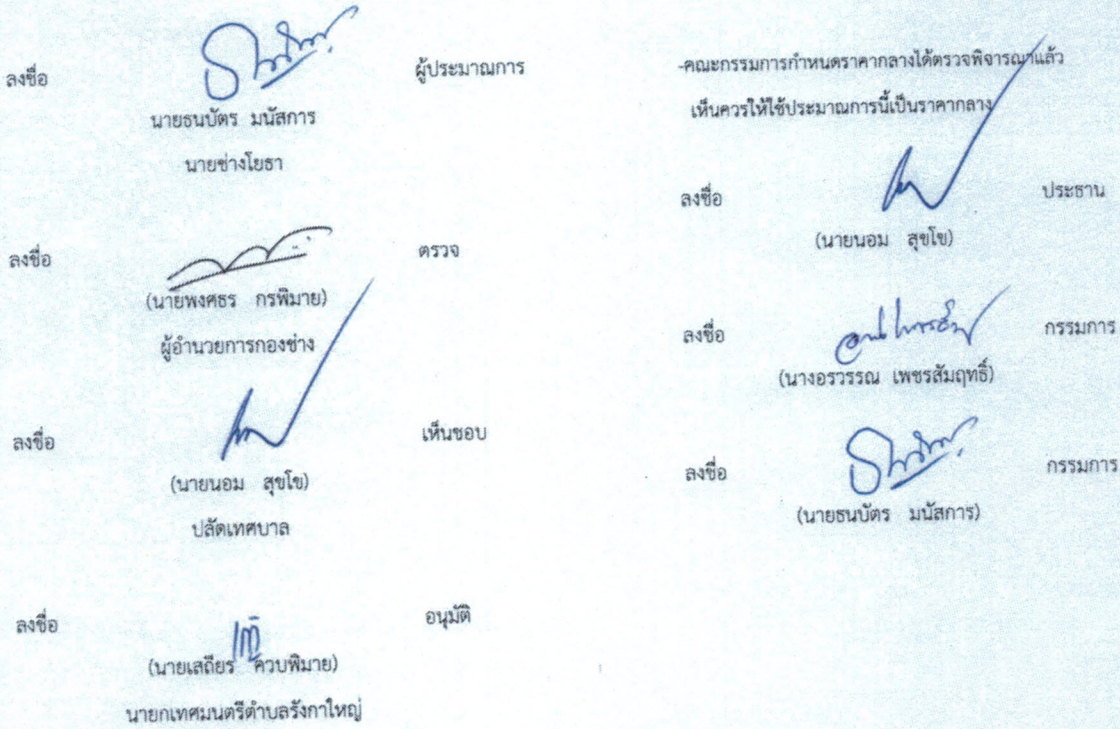 ลงชื่อ ผู้ประมาณการ
นายธนบัตร มนัสการ
นายช่างโยธา
ลงชื่อ ตรวจ
(นายพงศธร กรพิมาย)
ผู้อำนวยการกองช่าง
ลงชื่อ เห็นชอบ
(นายนอม สุขโข)
ปลัดเทศบาล
ลงชื่อ อนุมัติ
(นายเสถียร ควบพิมาย)
นายกเทศมนตรีตำบลรังกาใหญ่
-คณะกรรมการกำหนดราคากลางได้ตรวจพิจารณาแล้ว
เห็นควรให้ใช้ประมาณการนี้เป็นราคากลาง
ลงชื่อ ประธาน
(นายนอม สุขโข)
ลงชื่อ กรรมการ
(นางอรวรรณ เพชรสัมฤทธิ์)
ลงชื่อ กรรมการ
(นายธนบัตร มนัสการ)